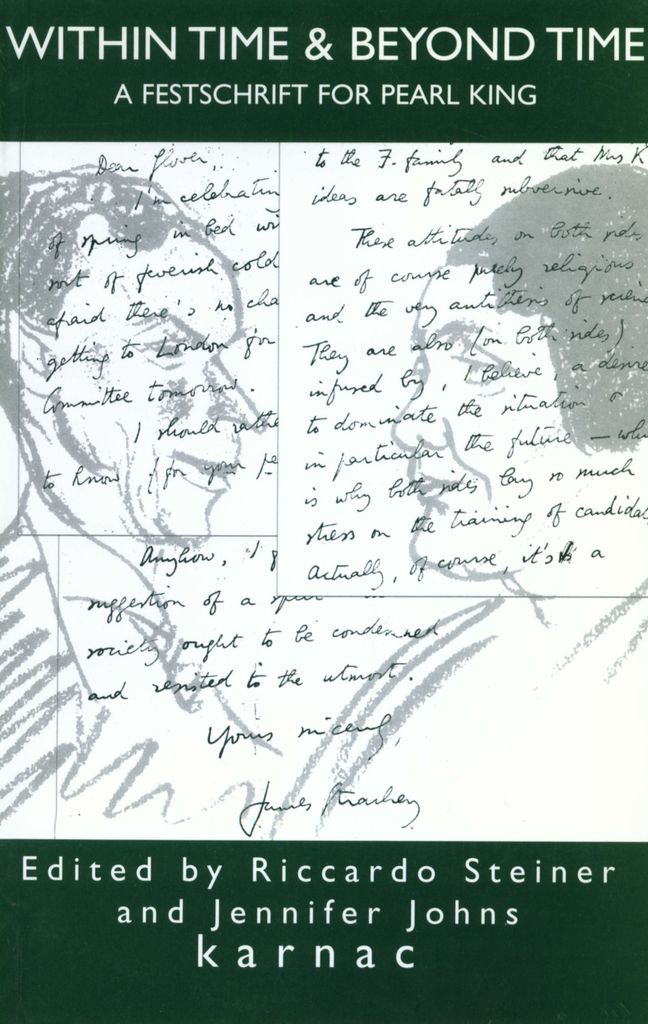 WITHIN TIME & BEYOND TIME
A FESTSCHRIFT FOR PEARL KING
Dear Glover,
I'm celebrating
of spring in bed wi
sort of feverish cold
afraid there's no cha
getting to London for
Committee tomorrow.
I should rathe
to know (for your pe
to the F. family and that Mrs K
ideas are fatally subversive.
These attitudes on both sides
are of course purely religious
and the very antithesis of scienc
They are also (on both sides)
infused by, I believe, a desire
to dominate the situation o
in particular the future — whic
is why both sides lay so much
stress on the training of candidat
Actually, of course, it's a
Anyhow, I
suggestion of a split
society ought to be condemned
and resisted to the utmost.
Yours sincerely,
James Strachey
Edited by Riccardo Steiner
and Jennifer Johns
karnac